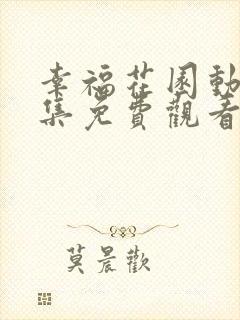 幸福花園動
集免費觀看
莫晨歡